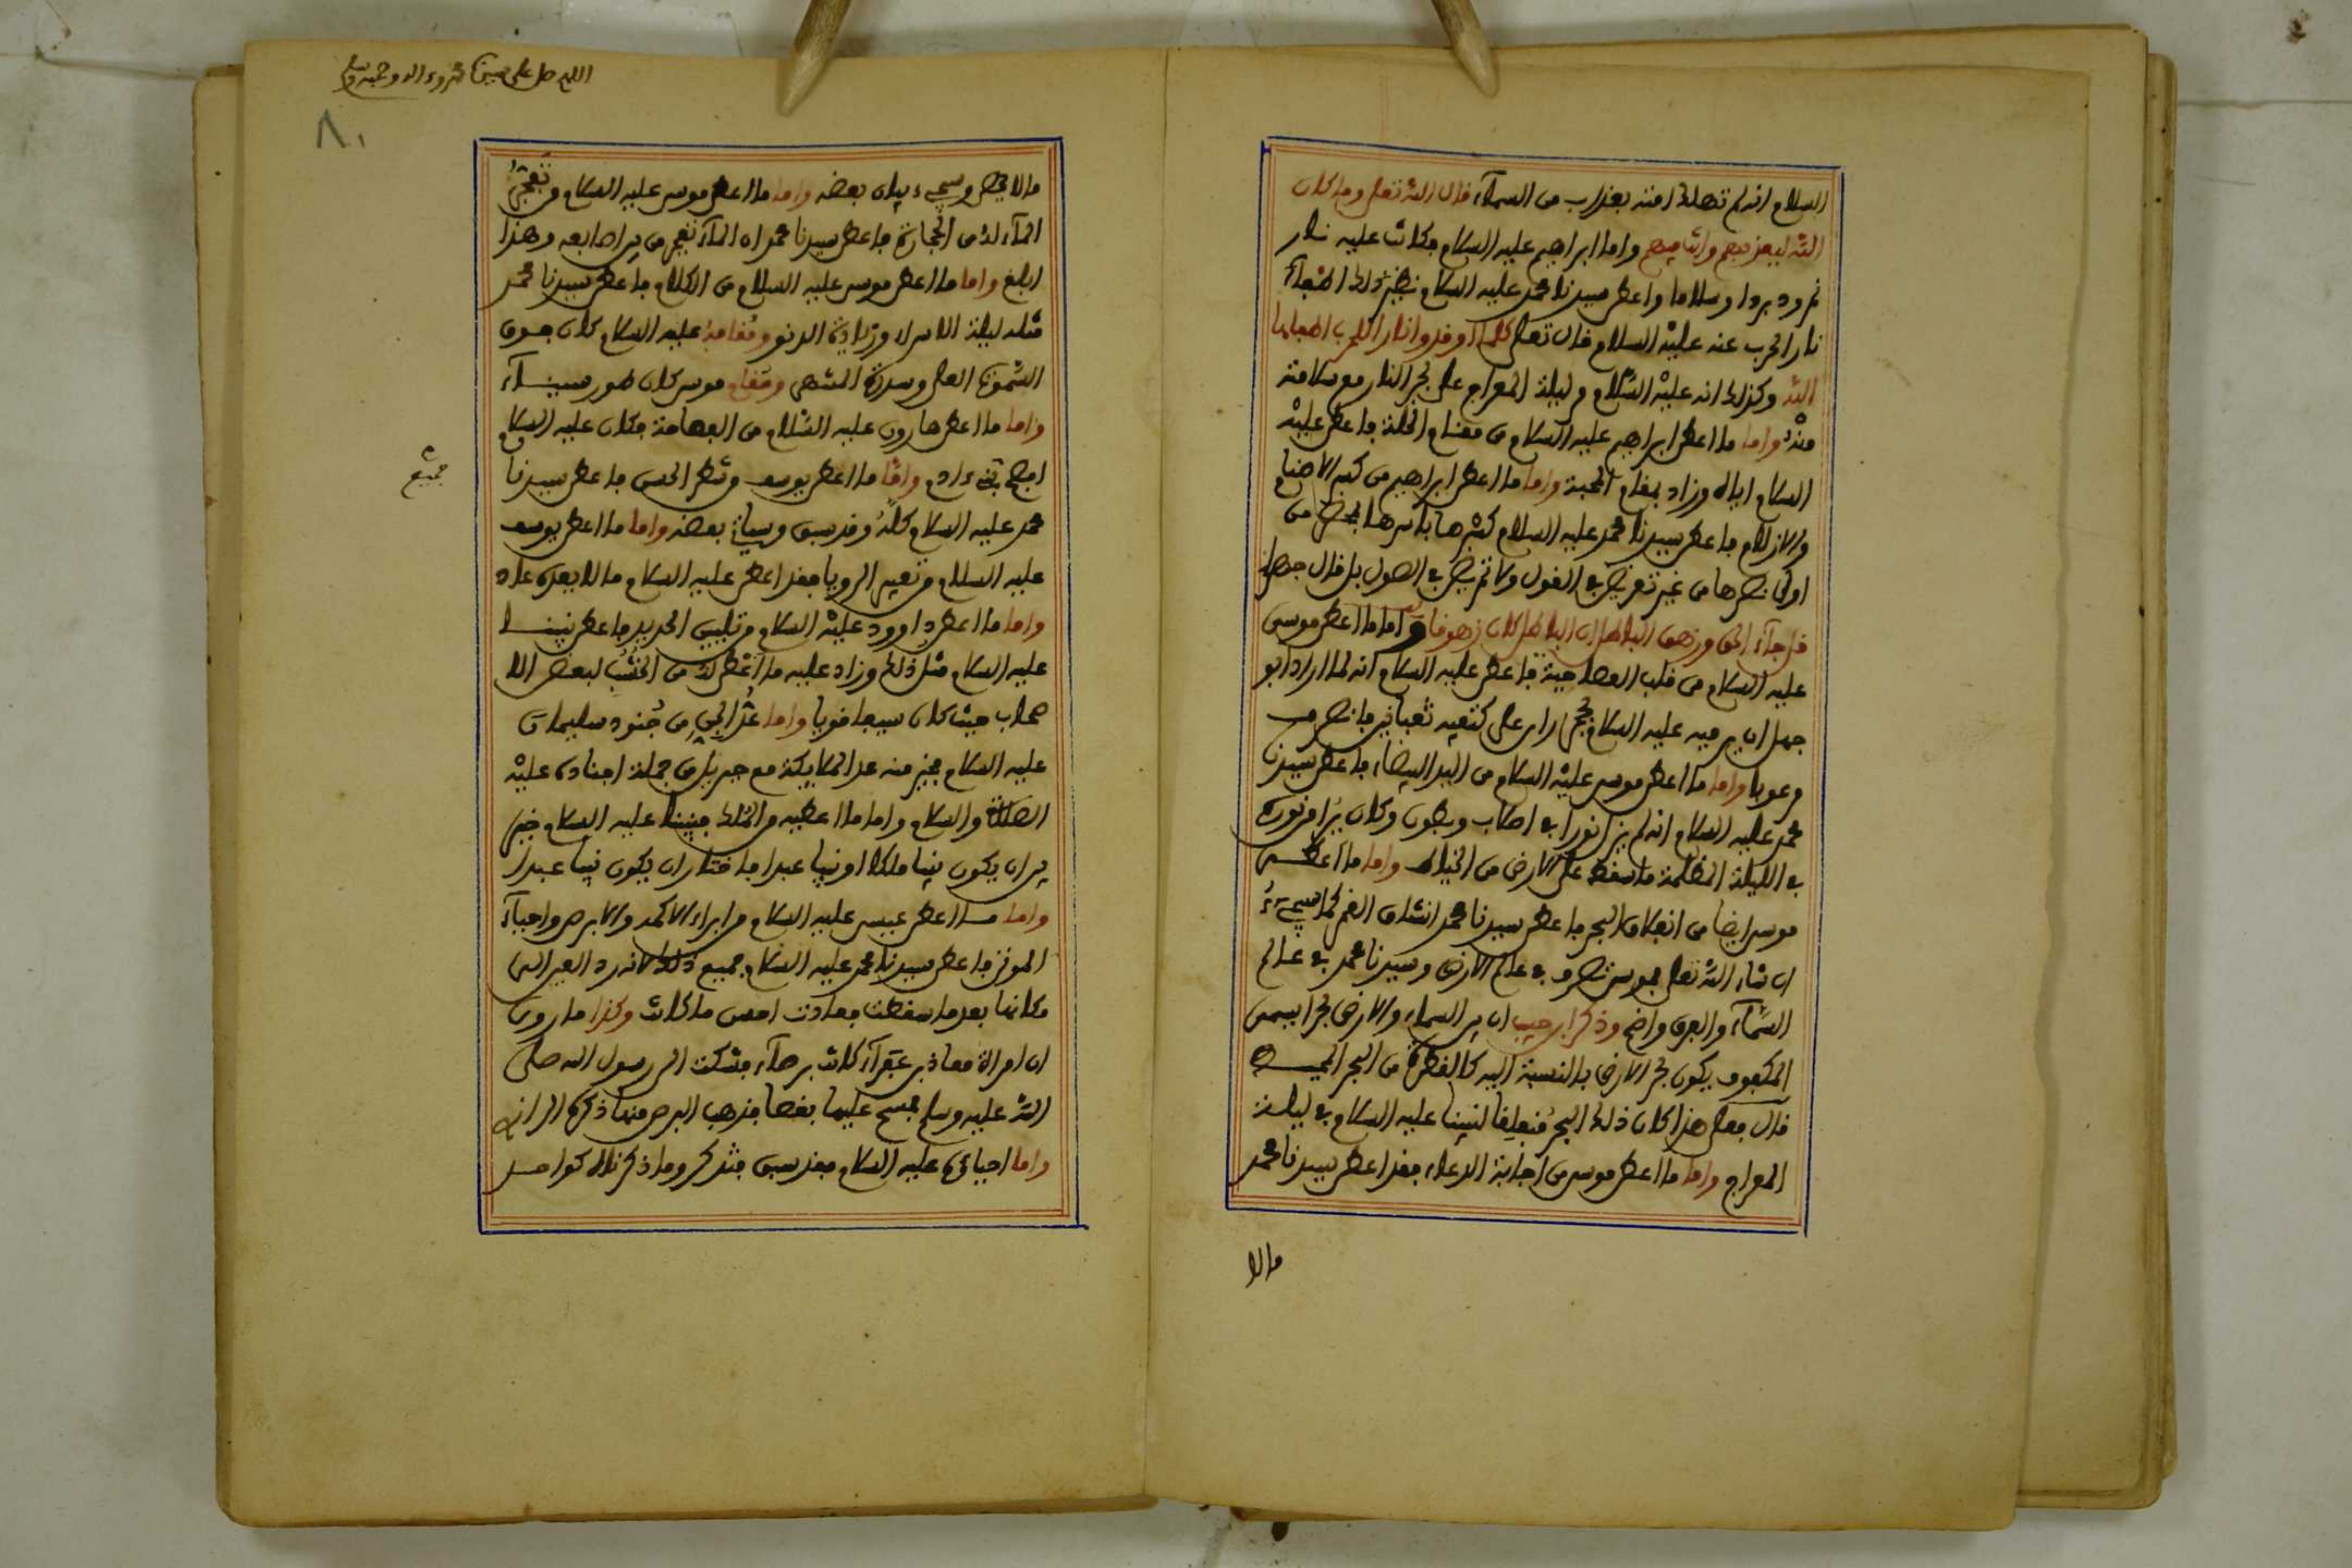 السلام انه لم تهلك امته بعذاب من السماء قال الله تعلى وما كان
الله ليعذبهم وانت فيهم واما ابراهيم عليه السلام فكانت عليه نار
نمرود بردا وسلاما واعطى سيدنا محمد عليه السلام نظير ذلك اطفاء
نار الحرب عنه عليه السلام قال تعلى كلما اوقدوا نارا للحرب اطفاها
الله وكذلك انه عليه السلام مر ليلة المعراج على بحر النار مع سلامته
منه واما ما اعطى ابراهيم عليه السلام من مقام الخلة فاعطى عليه
السلام اياه وزاد بمقام المحبة واما ما اعطى ابراهيم من كسر الاصنام
والازلام فاعطى سيدنا محمد عليه السلام كسرها باسرها بمحضر من
اولى نصرها من غير تعريض في القول ولا تمريض في الصول بل قال جهارا
قل جاء الحق وزهق الباطل ان الباطل كان زهوقا واما ما اعطى موسى
عليه السلام من قلب العصا حية فاعطى عليه السلام انه لما اراد ابو
جهل ان يرميه عليه السلام بحجر راى على كتفيه ثعبانين فانصرف
مرعوبا واما ما اعطى موسى عليه السلام من اليد البيضاء فاعطى سيدنا
محمد عليه السلام انه لم يزل نورا في اصلاب وبطون وكان يرا من نوره
في الليلة المظلمة ما سقط على الارض من الخياط واما ما اعطى
موسى ايضا من انفلاق البحر فاعطى سيدنا محمد انشقاق القمر كما سيجيء
ان شاء الله تعلى فموسى تصرف في عالم الارض وسيدنا محمد في عالم
السماء والفرق واضح وذكر ابن حبيب ان بين السماء والارض بحرا يسمى
المكفوف يكون بحر الارض بالنسبة اليه كالقطرة من البحر المحيط
قال فعلى هذا كان ذلك البحر منفلقا لنبينا عليه السلام في ليلة
المعراج واما ما اعطى موسى من اجابة الدعاء فقد اعطى سيدنا محمد
مالا
اللهم صل على سيدنا محمد وءاله وصحبه وسلم
٨٠
مالا يحصى وسيجيء بيان بعضه واما ما اعطى موسى عليه السلام من تفجر
الماء له من الحجارة فاعطى سيدنا محمد ان الماء تفجر من بين اصابعه وهذا
ابلغ واما ما اعطى موسى عليه السلام من الكلام فاعطى سيدنا محمد
مثله ليلة الاسراء وزيادة الدنو ومقامه عليه السلام كان فوق
السموات العلى وسدرة المنتهى ومقام موسى كان طور سيناء
واما ما اعطى هارون عليه السلام من الفصاحة فكان عليه السلام
افصح بني ءادم واما ما اعطى يوسف من شطر الحسن فاعطى سيدنا
محمد عليه السلام كله وقد سبق وسياتي بعضه واما ما اعطى يوسف
عليه السلام من تعبير الرويا فقد اعطى عليه السلام ما لا يعده عاد
واما ما اعطى داوود عليه السلام من تليين الحديد فاعطى نبينا
عليه السلام مثل ذلك وزاد عليه ما اعطى له من الخشب لبعض الا
صحاب حيث كان سيفا قويا واما عد الجن من جنود سليمان
عليه السلام فخير منه عد الملايكة مع جبريل من جملة اجناده عليه
الصلاة والسلام واما ما اعطيه من الملك فنبينا عليه السلام خير
بين ان يكون نبيا ملكا او نبيا عبدا فاختار ان يكون نبيا عبدا
واما ما اعطى عيسى عليه السلام من ابراء الاكمه والابرص واحياء
الموتى فاعطى سيدنا محمد عليه السلام جميع ذلك لانه رد العين الى
مكانها بعد ما سقطت فعادت احسن ما كانت وكذا ما روى
ان امراة معاذ بن عفراء كانت برصاء فشكت الى رسول الله صلى
الله عليه وسلم فمسح عليها بعصا فذهب البرص منها ذكره الرازي
واما احياؤه عليه السلام فقد سبق فتذكر وما ذكرناه كواحد
جميع